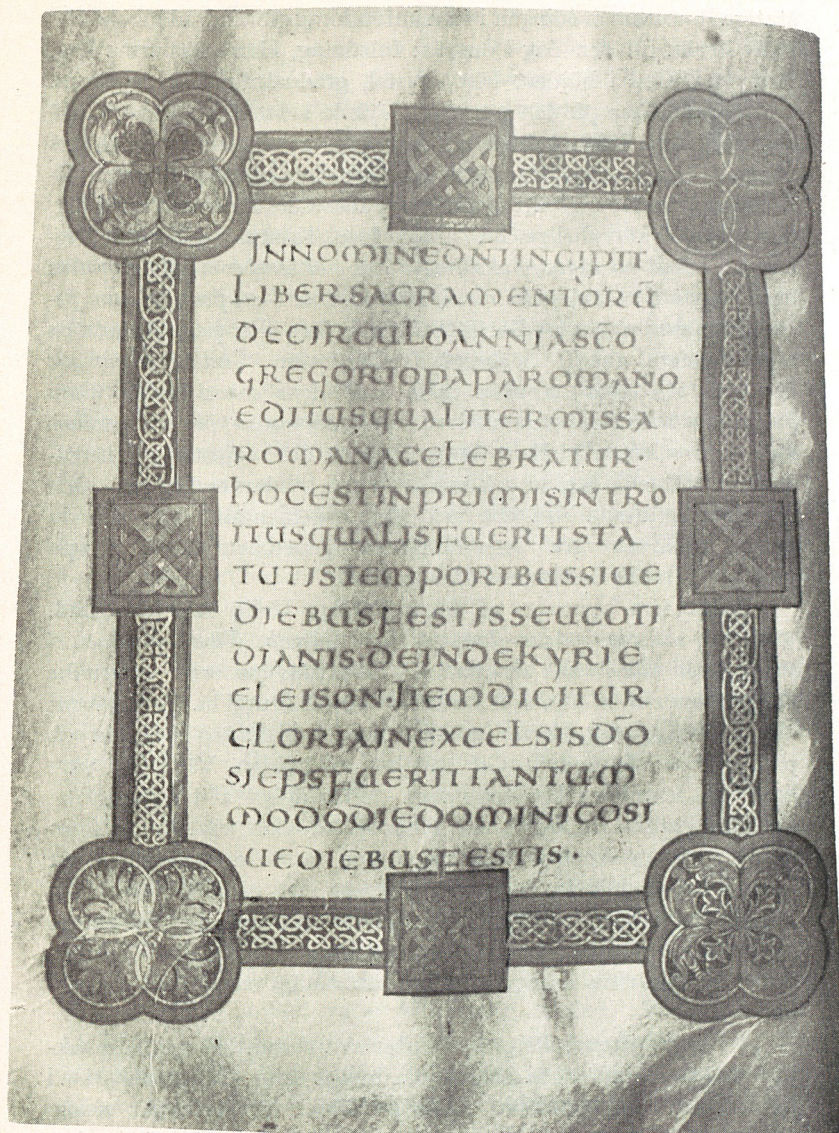 INNOMINEDN̄IINCIPIT
LIBERSACRAMENTORŪ
DECIRCULOANNIASC̄O
GREGORIOPAPAROMANO
EDITUSQUALITERMISSA
ROMANACELEBRATUR·
HOCESTINPRIMISINTRO
ITUSQUALISFUERITSTA
TUTISTEMPORIBUSSIUE
DIEBUSFESTISSEUCOTI
DIANIS·DEINDEKYRIE
ELEISON·ITEMDICITUR
GLORIAINEXCELSISD̄O
SIEP̄SFUERITTANTUM
MODODIEDOMINICOSI
UEDIEBUSFESTIS·